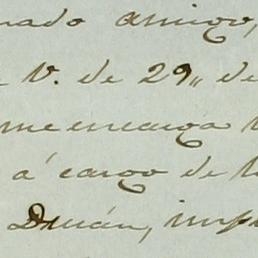 nado amigo,
V. de 29,, de
me encarga
á cargo de
Druán,